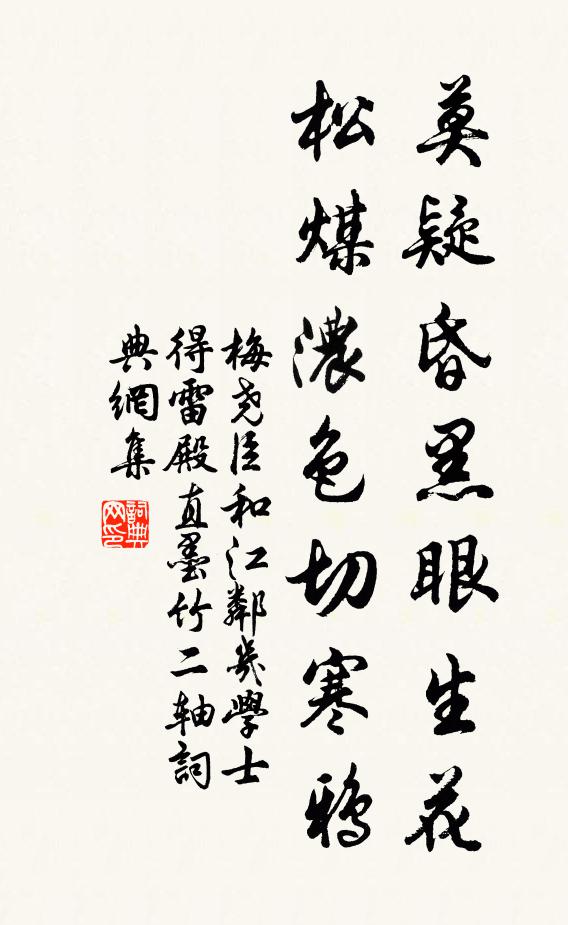 莫疑昏黑眼生花
松煤濃色切寒鴉
梅尧臣和江鄰幾學士
得雷殿直墨竹二轴詞
典網集
詞典
网印